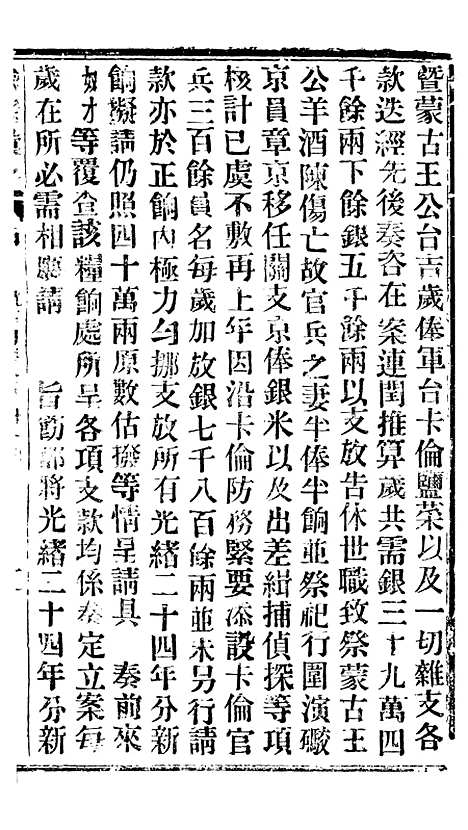 暨蒙古王公台吉歲俸軍台卡倫鹽菜以及一切雜支各
款迭經先後奏咨在案連閏推算歲共需銀三十九萬四
千餘兩下餘銀五千餘兩以支放告休世職致祭蒙古王
公羊酒陳傷亡故官兵之妻半俸半餉並祭祀行圍演礮
京員章京移任關支京俸銀米以及出差緝捕偵探等項
核計已虞不敷再上年因沿卡倫防務緊要添設卡倫官
兵三百餘員名每歲加放銀七千八百餘兩並未另行請
款亦於正餉內極力勻挪支放所有光緒二十四年分新
餉擬請仍照四十萬兩原數估撥等情呈請具　奏前來
奴才等覆查該糧餉處所呈各項支款均係奏定立案每
歲在所必需相應請　　旨飭部將光緒二十四年分新